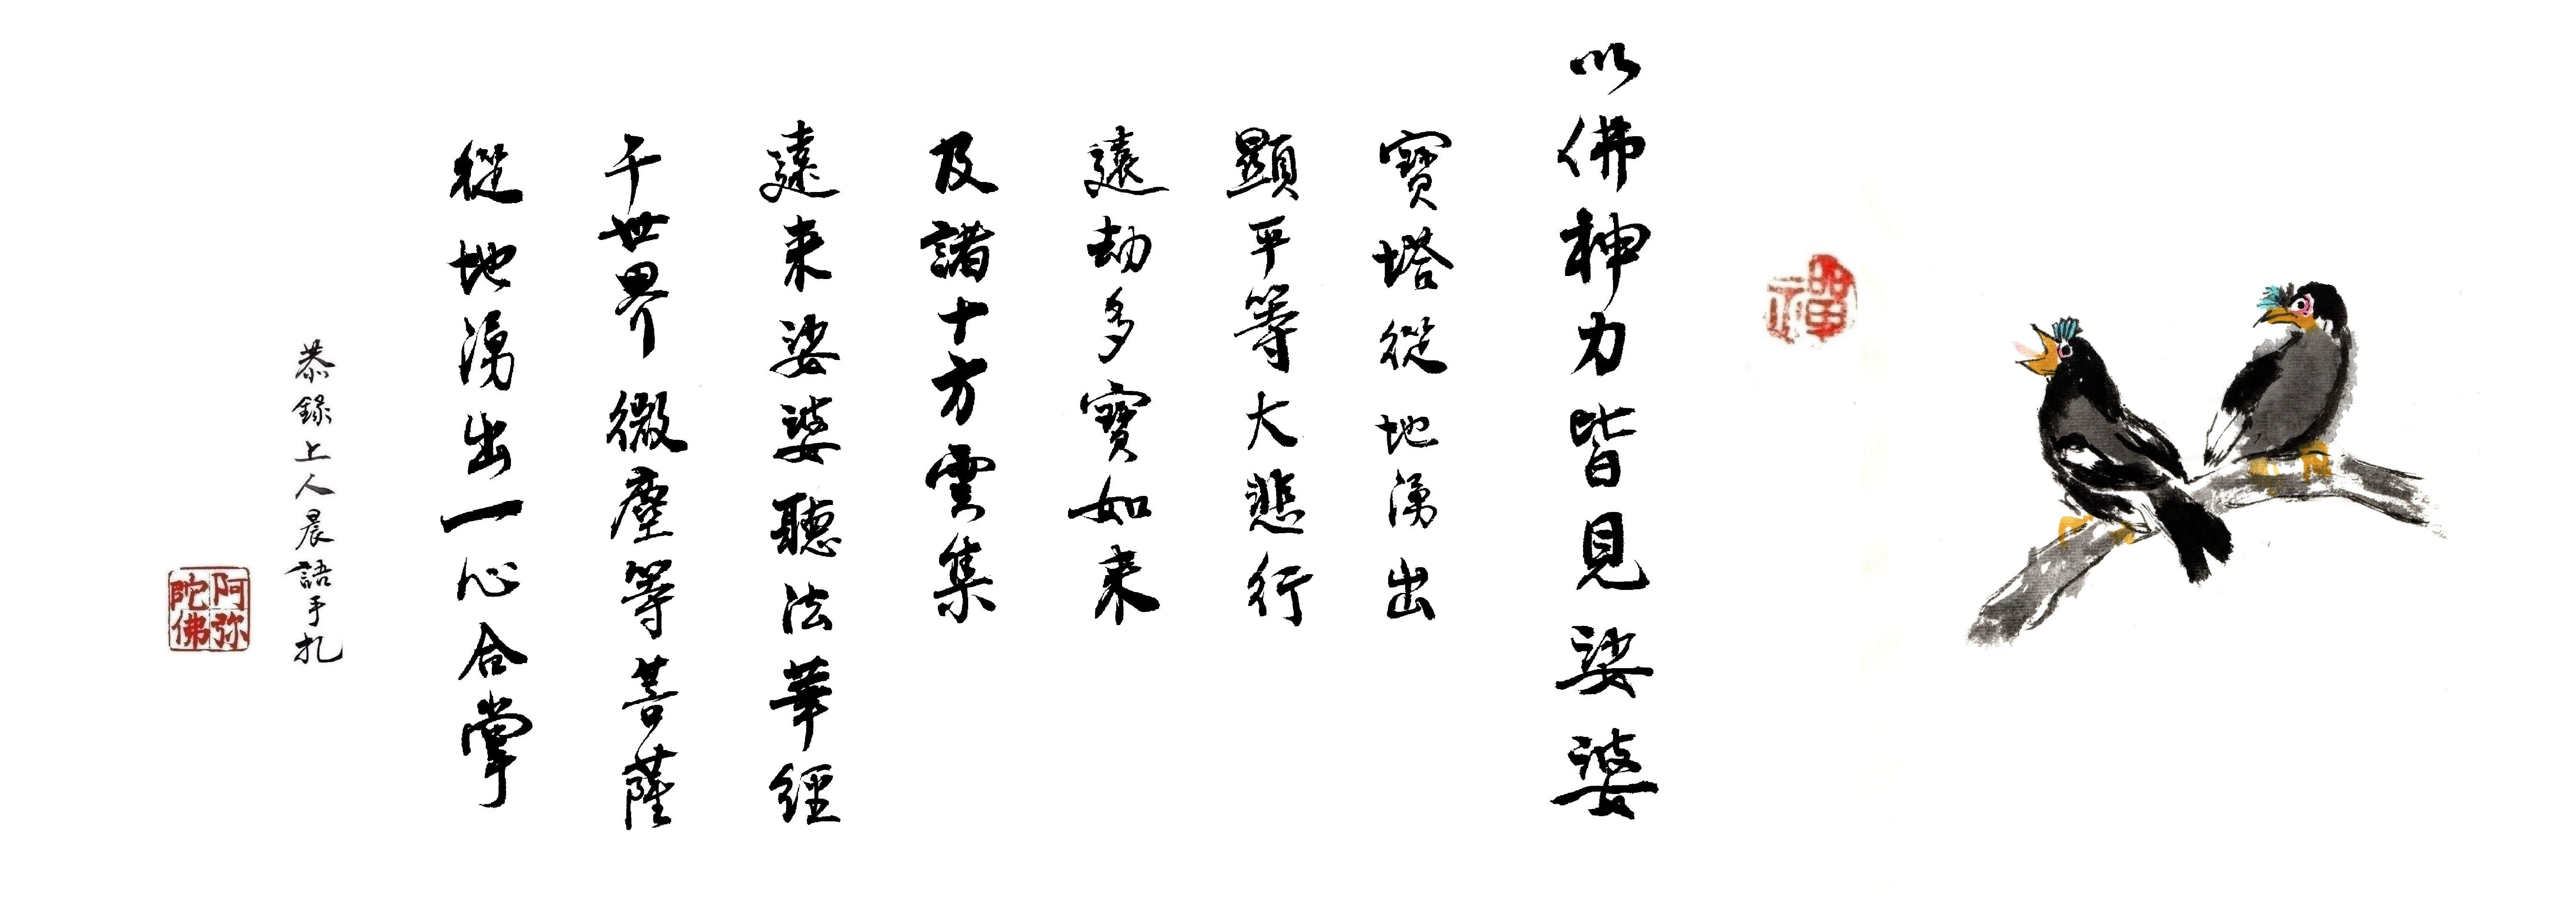 禪
以佛神力皆見娑婆
寶塔從地湧出
顯平等大悲行
遠劫多寶如来
及諸十方雲集
遠来娑婆聽法華經
千世界微塵等菩薩
從地湧出一心合掌
恭錄上人晨語手札
阿弥陀佛